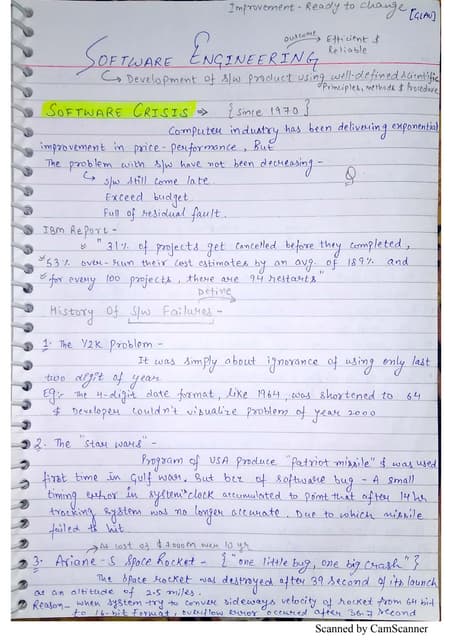 Improvement - Ready to change [GLAU]
outcome → Efficient &
Reliable
SOFTWARE ENGINEERING
↳ Development of s/w product using well-defined scientific
Principles, methods & Procedure
SOFTWARE CRISIS ⇒ {Since 1970}
Computer industry has been delivering exponential
improvement in price-performance, But
The problem with s/w have not been decreasing -
↳ s/w still come late.
Exceed budget
Full of residual fault.
IBM Report -
"31% of projects get cancelled before they completed,
53% over-run their cost estimates by an avg. of 189% and
for every 100 projects, there are 94 restarts"
Define
History Of S/w Failures -
1- The Y2K Problem -
It was simply about ignorance of using only last
two digit of year
Eg:- The 4-digit date format, like 1964, was shortened to 64
& Developer couldn't visualize problem of year 2000
2. The "Star wars" -
Program of USA produce "Patriot missile" & was used
first time in Gulf war. But bcz of software bug - A small
timing error in system's clock accumulated to point that after 14 hr
tracking system was no longer accurate. Due to which missile
failed to hit.
→ At cost of $7000m over 10 yr
3- Ariane-5 Space Rocket - {"one little bug, one big crash"}
The space rocket was destroyed after 39 second of its launch
at an altitude of 2.5 miles.
Reason - when system try to conver sideways velocity of rocket from 64 bit
to 16-bit format, overflow error occured after 36.7 second
Scanned by CamScanner